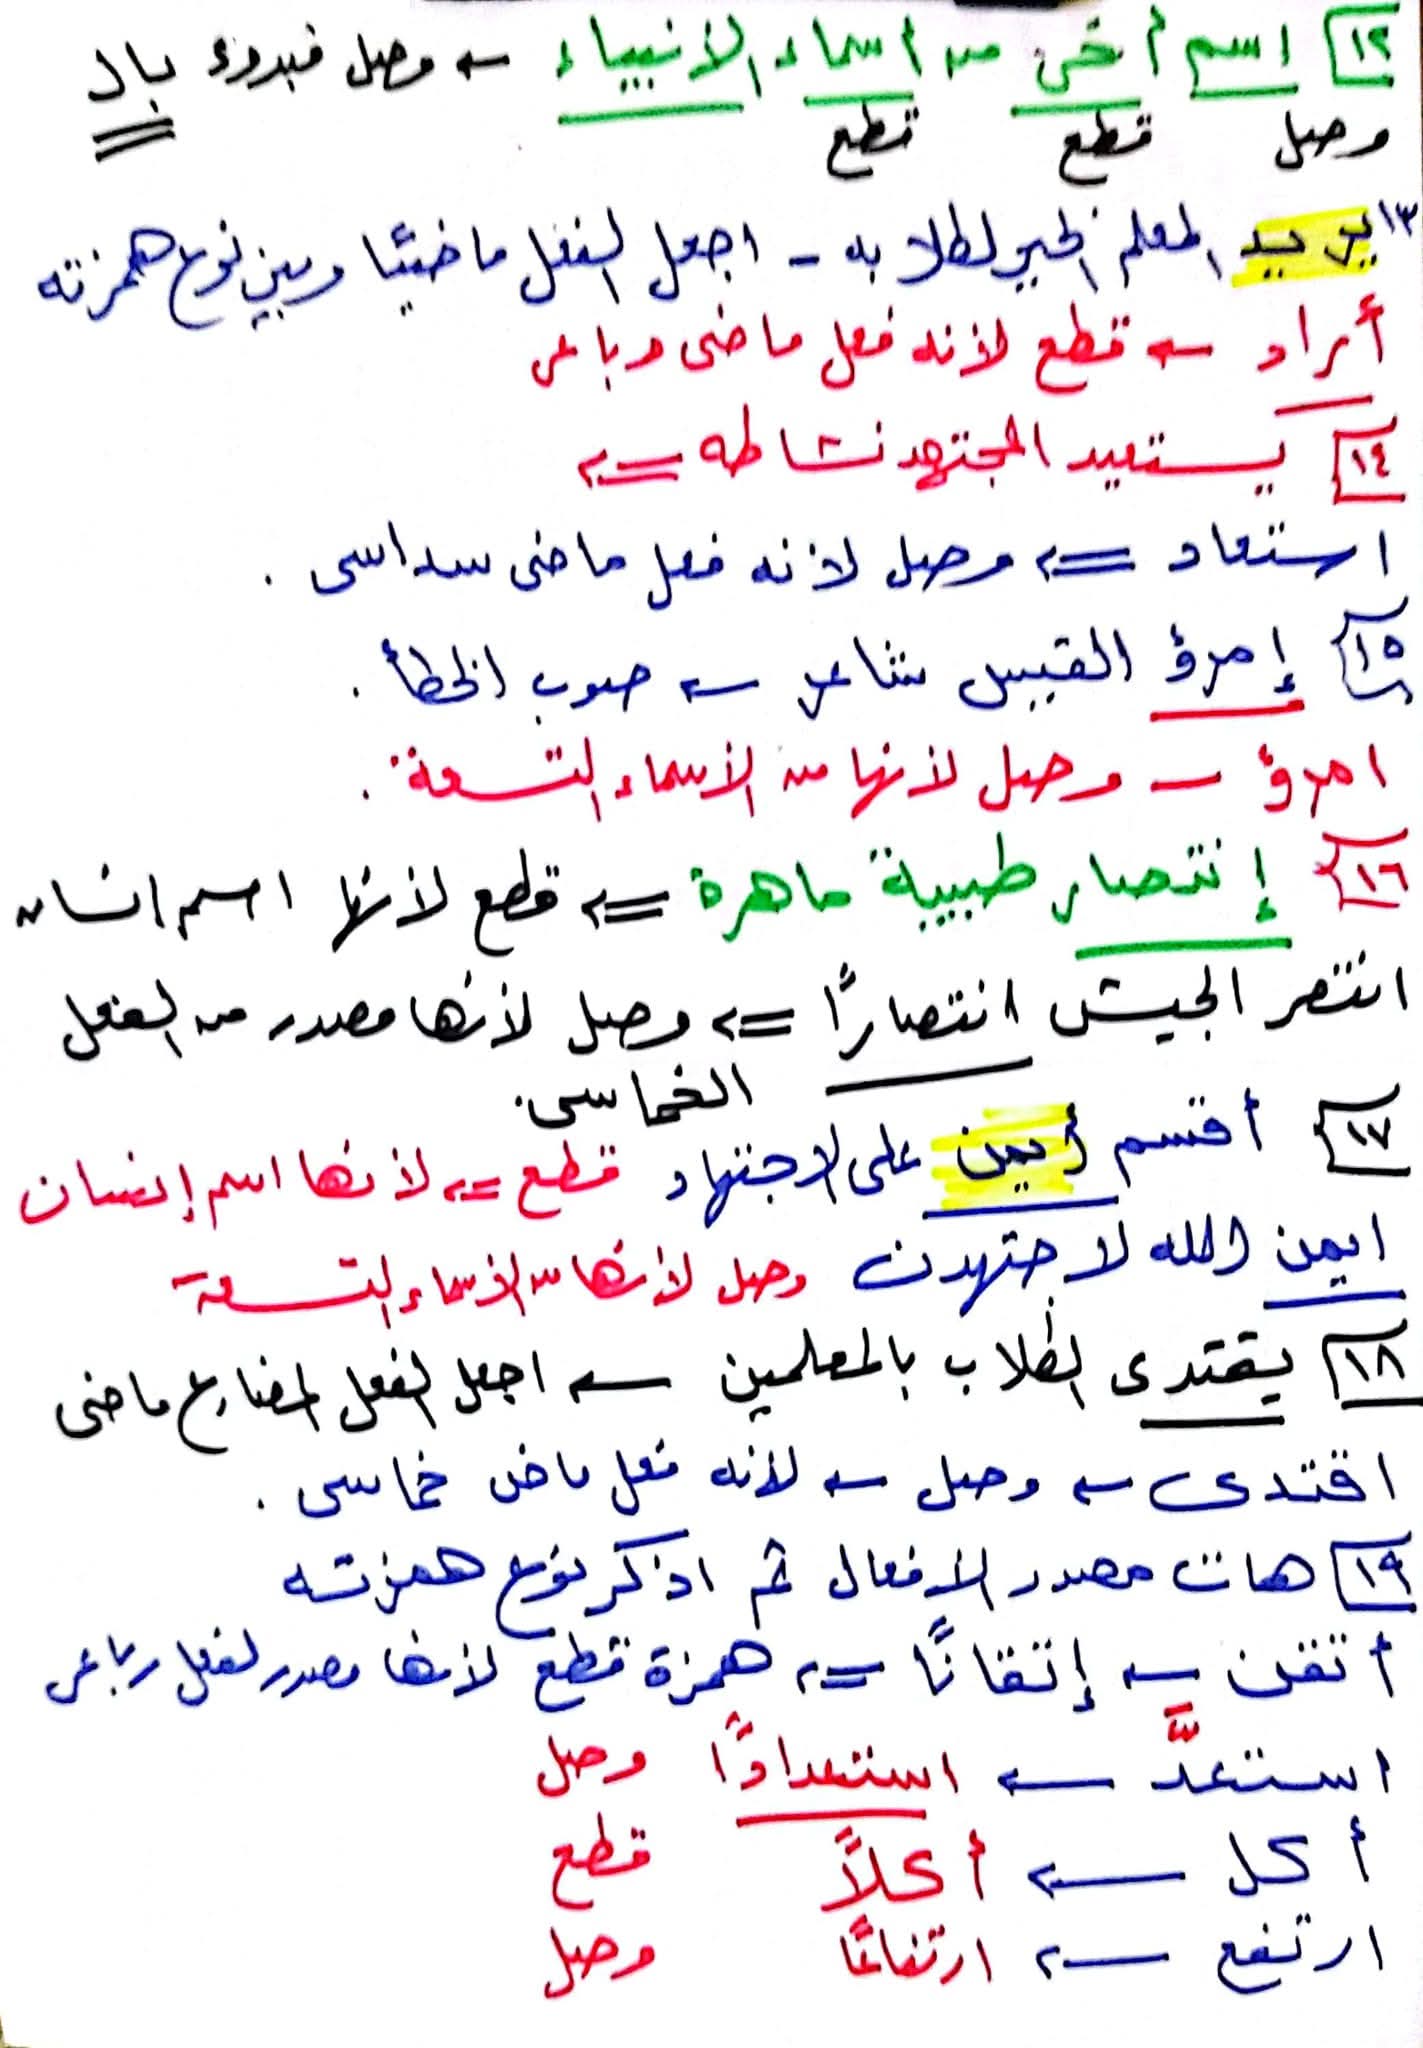 ١٢ اسم أخى من أسماء الأنبياء ← وصل مبدوء بال
وصل قطع قطع
١٣ يريد المعلم الخير لطلابه - اجعل الفعل ماضيًا وبين نوع همزته
أراد ← قطع لأنه فعل ماضى رباعى
١٤ يستعيد المجتهد نشاطه ⇐
استعاد ⇐ وصل لأنه فعل ماضى سداسى .
١٥ إمرؤ القيس شاعر ← صوب الخطأ .
امرؤ - وصل لأنها من الأسماء التسعة .
١٦ إنتصار طبيبة ماهرة ⇐ قطع لأنها اسم انسان
انتصر الجيش انتصارًا ⇐ وصل لأنها مصدر من الفعل
الخماسى .
١٧ أقسم أيمن على الاجتهاد قطع ⇐ لأنها اسم إنسان
ايمن الله لاجتهدن وصل لأنها من الأسماء التسعة
١٨ يقتدى الطلاب بالمعلمين ← اجعل الفعل المضارع ماضى
اقتدى ← وصل ← لأنه فعل ماض خماسى .
١٩ هات مصدر الأفعال ثم اذكر نوع همزته
أتقن ← إتقانًا ⇐ همزة قطع لأنها مصدر لفعل رباعى
استعدَّ ← استعدادًا وصل
أكل ← أكلاً قطع
ارتفع ← ارتفاعًا وصل